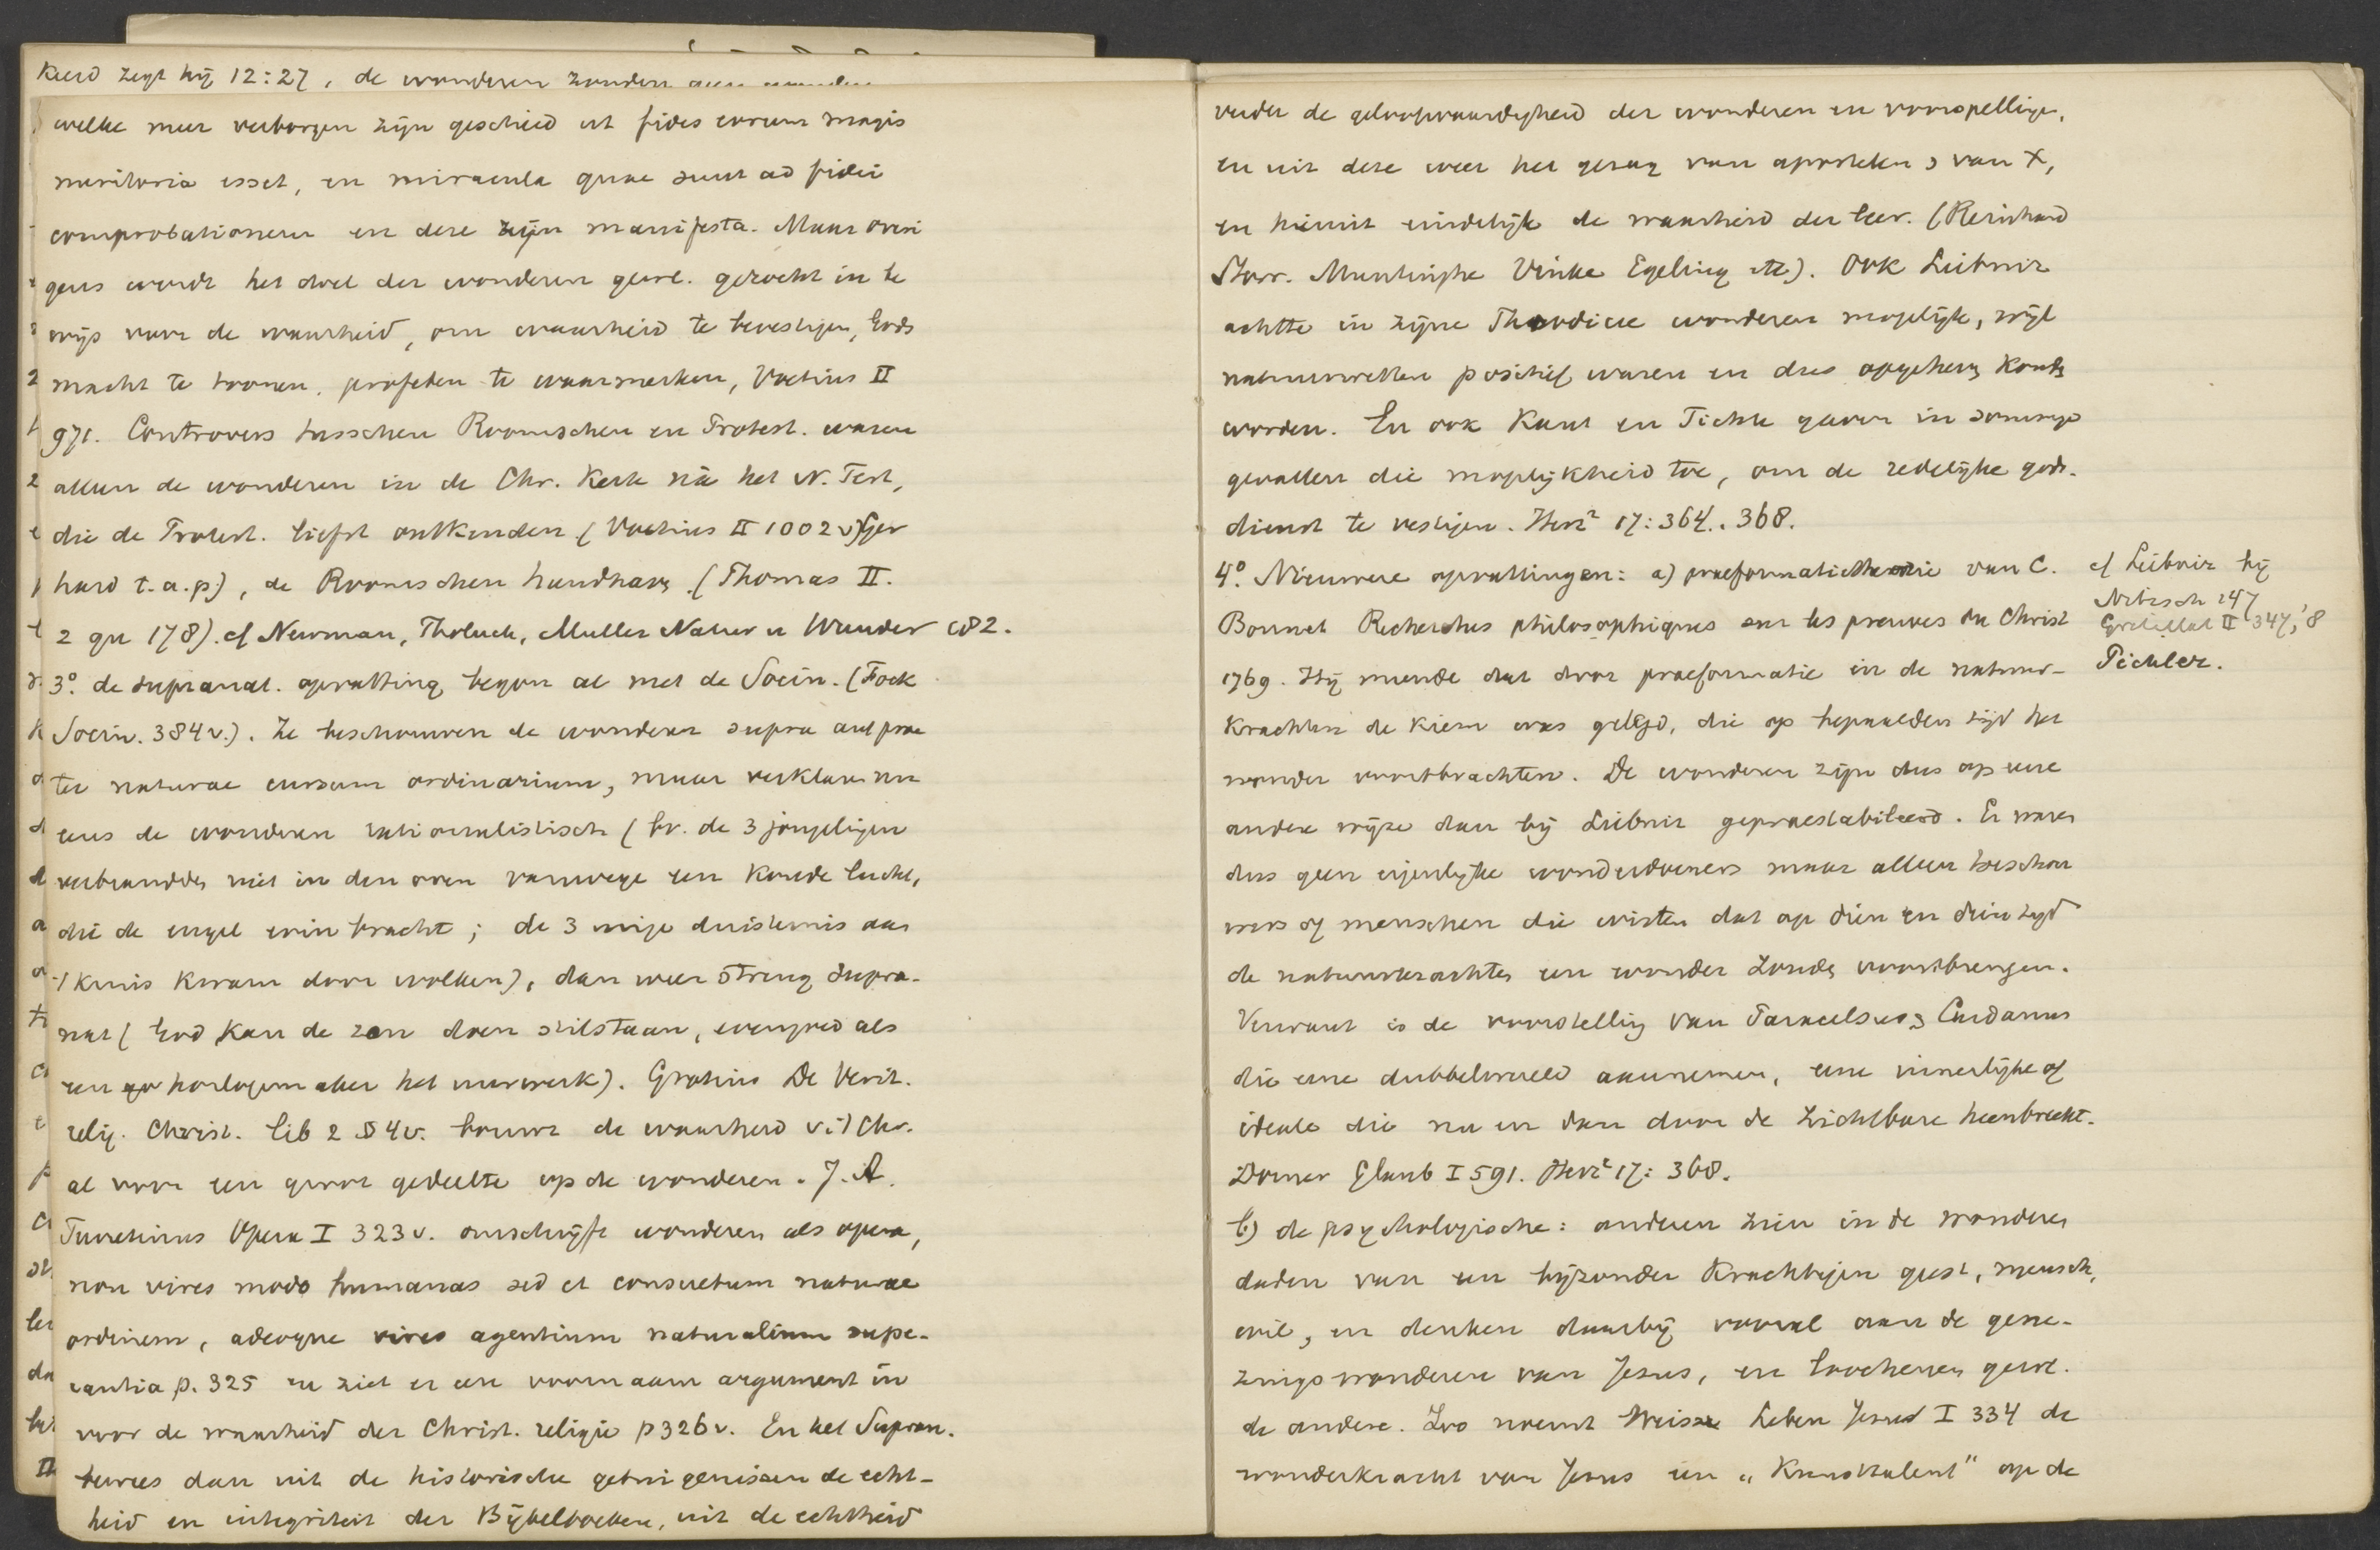 keerd zegt hij 12:27, de wonderen zouden geen
welke meer verborgen zijn geschied ut fides eorum magis
meritoria esset, en miracula quae sunt ad fidei
comprobationem en deze zijn manifesta. Maar overi
gens wordt het doel der wonderen gew. gezocht in be
wijs voor de waarheid, om waarheid te bevestigen, Gods
macht te toonen, profeten te waarmerken, Voetius II
971. Controvers tusschen Roomschen en Protest. waren
alleen de wonderen in de Chr. Kerk nà het N. Test,
die de Protest. liefst ontkenden (Voetius II 1002v) Ger
hard t.a.p), de Roomschen handhav. (Thomas II.
2 qu 178). cf Newman, Tholuck, Muller Natur u Wunder 182.
3° de supranat. opvatting begon al met de Socin. (Fock
Socin. 384v.). Ze beschouwen de wonderen supra aut prae
ter naturae cursum ordinarium, maar verklaren nu
eens de wonderen rationalistisch (bv. de 3 jongelingen
verbrandden niet in den oven vanwege een koude lucht,
die de engel erin bracht; de 3 urige duisternis aan
't kruis kwam door wolken), dan weer streng supra-
nat (God kan de zon doen stilstaan, evengoed als
een horlogemaker het uurwerk). Grotius De Verit.
relig. Christ. lib 2 § 4v. bouwt de waarheid v. 't Chr.
al voor een groot gedeelte op de wonderen. J. A.
Turretinus Opera I 323v. omschrijft wonderen als opera,
non vires modo humanas sed et consuetum naturae
ordinem, adeoque vires agentium naturalium supe-
rantia p. 325 en ziet er een voornaam argument in
voor de waarheid der Christ. religie p 326v. En het Supran.
bewees dan uit de historische getuigenissen de echt-
heid en integriteit der Bijbelboeken, uit de echtheid
verder de geloofwaardigheid der wonderen en voorspelling.
en uit deze weer het gezag van apostelen & van X,
en hieruit eindelijk de waarheid der leer. (Reinhard
Storr. Muntinghe Vinke Egeling etc). Ook Leibniz
achtte in zijne Theodicee wonderen mogelijk, wijl
natuurwetten positief waren en dus opgeheven konden
worden. En ook Kant en Fichte gaven in sommige
gevallen die mogelijkheid toe, om de redelijke gods-
dienst te vestigen. Herz² 17:364..368.
4.° Nieuwere opvattingen: a) praeformatietheorie van C.
Bonnet Recherches philosophiques sur les preuves du Christ
1769. Hij meende dat door praeformatie in de natuur-
krachten de kiem was gelegd, die op bepaalden tijd het
wonder voortbrachten. De wonderen zijn dus op eene
andere wijze dan bij Leibniz gepraestabileerd. Er waren
dus geen eigenlijke wonderdoeners maar alleen beschou
wers of menschen die wisten dat op dien en dien tijd
de natuurkrachten een wonder zouden voortbrengen.
Verwant is de voorstelling van Paracelsus & Cardanus
die eene dubbelwereld aannemen, eene innerlijke of
ideale die nu en dan door de zichtbare heenbreekt.
Dorner Glaub I 591. Herz² 17:368.
cf Leibniz bij
Nitzsch 147
Gretillat II 347, 8
Pichler.
b) de psychologische: anderen zien in de wonderen
daden van een bijzonder krachtigen geest, mensch,
wil, en denken daarbij vooral aan de gene-
zingswonderen van Jesus, en loochenen gew.
de andere. Zoo noemt Weisse Leben Jesu I 334 de
wonderkracht van Jesus een „Kunsttalent" op de